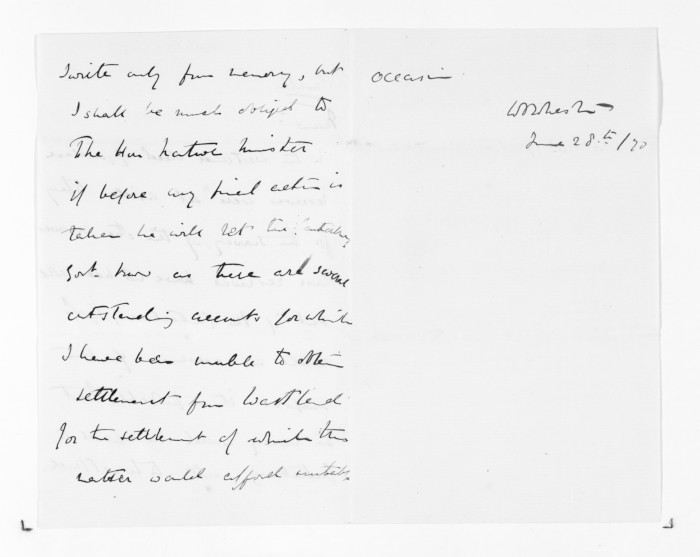 I write only from memory, but
I shall be much obliged to
The Hon Native Minister
if before any final action is
taken he will let the Canterbury
Govt. know as there are several
outstanding accounts for which
I have been unable to obtain
settlement from Westland
for the settlement of which this
matter would afford suitable
occasion
June 28.th/70